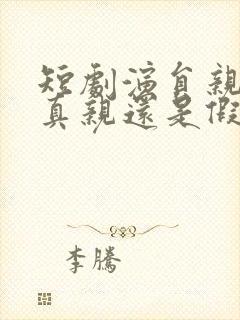 短劇演員親
真親還是假
李騰